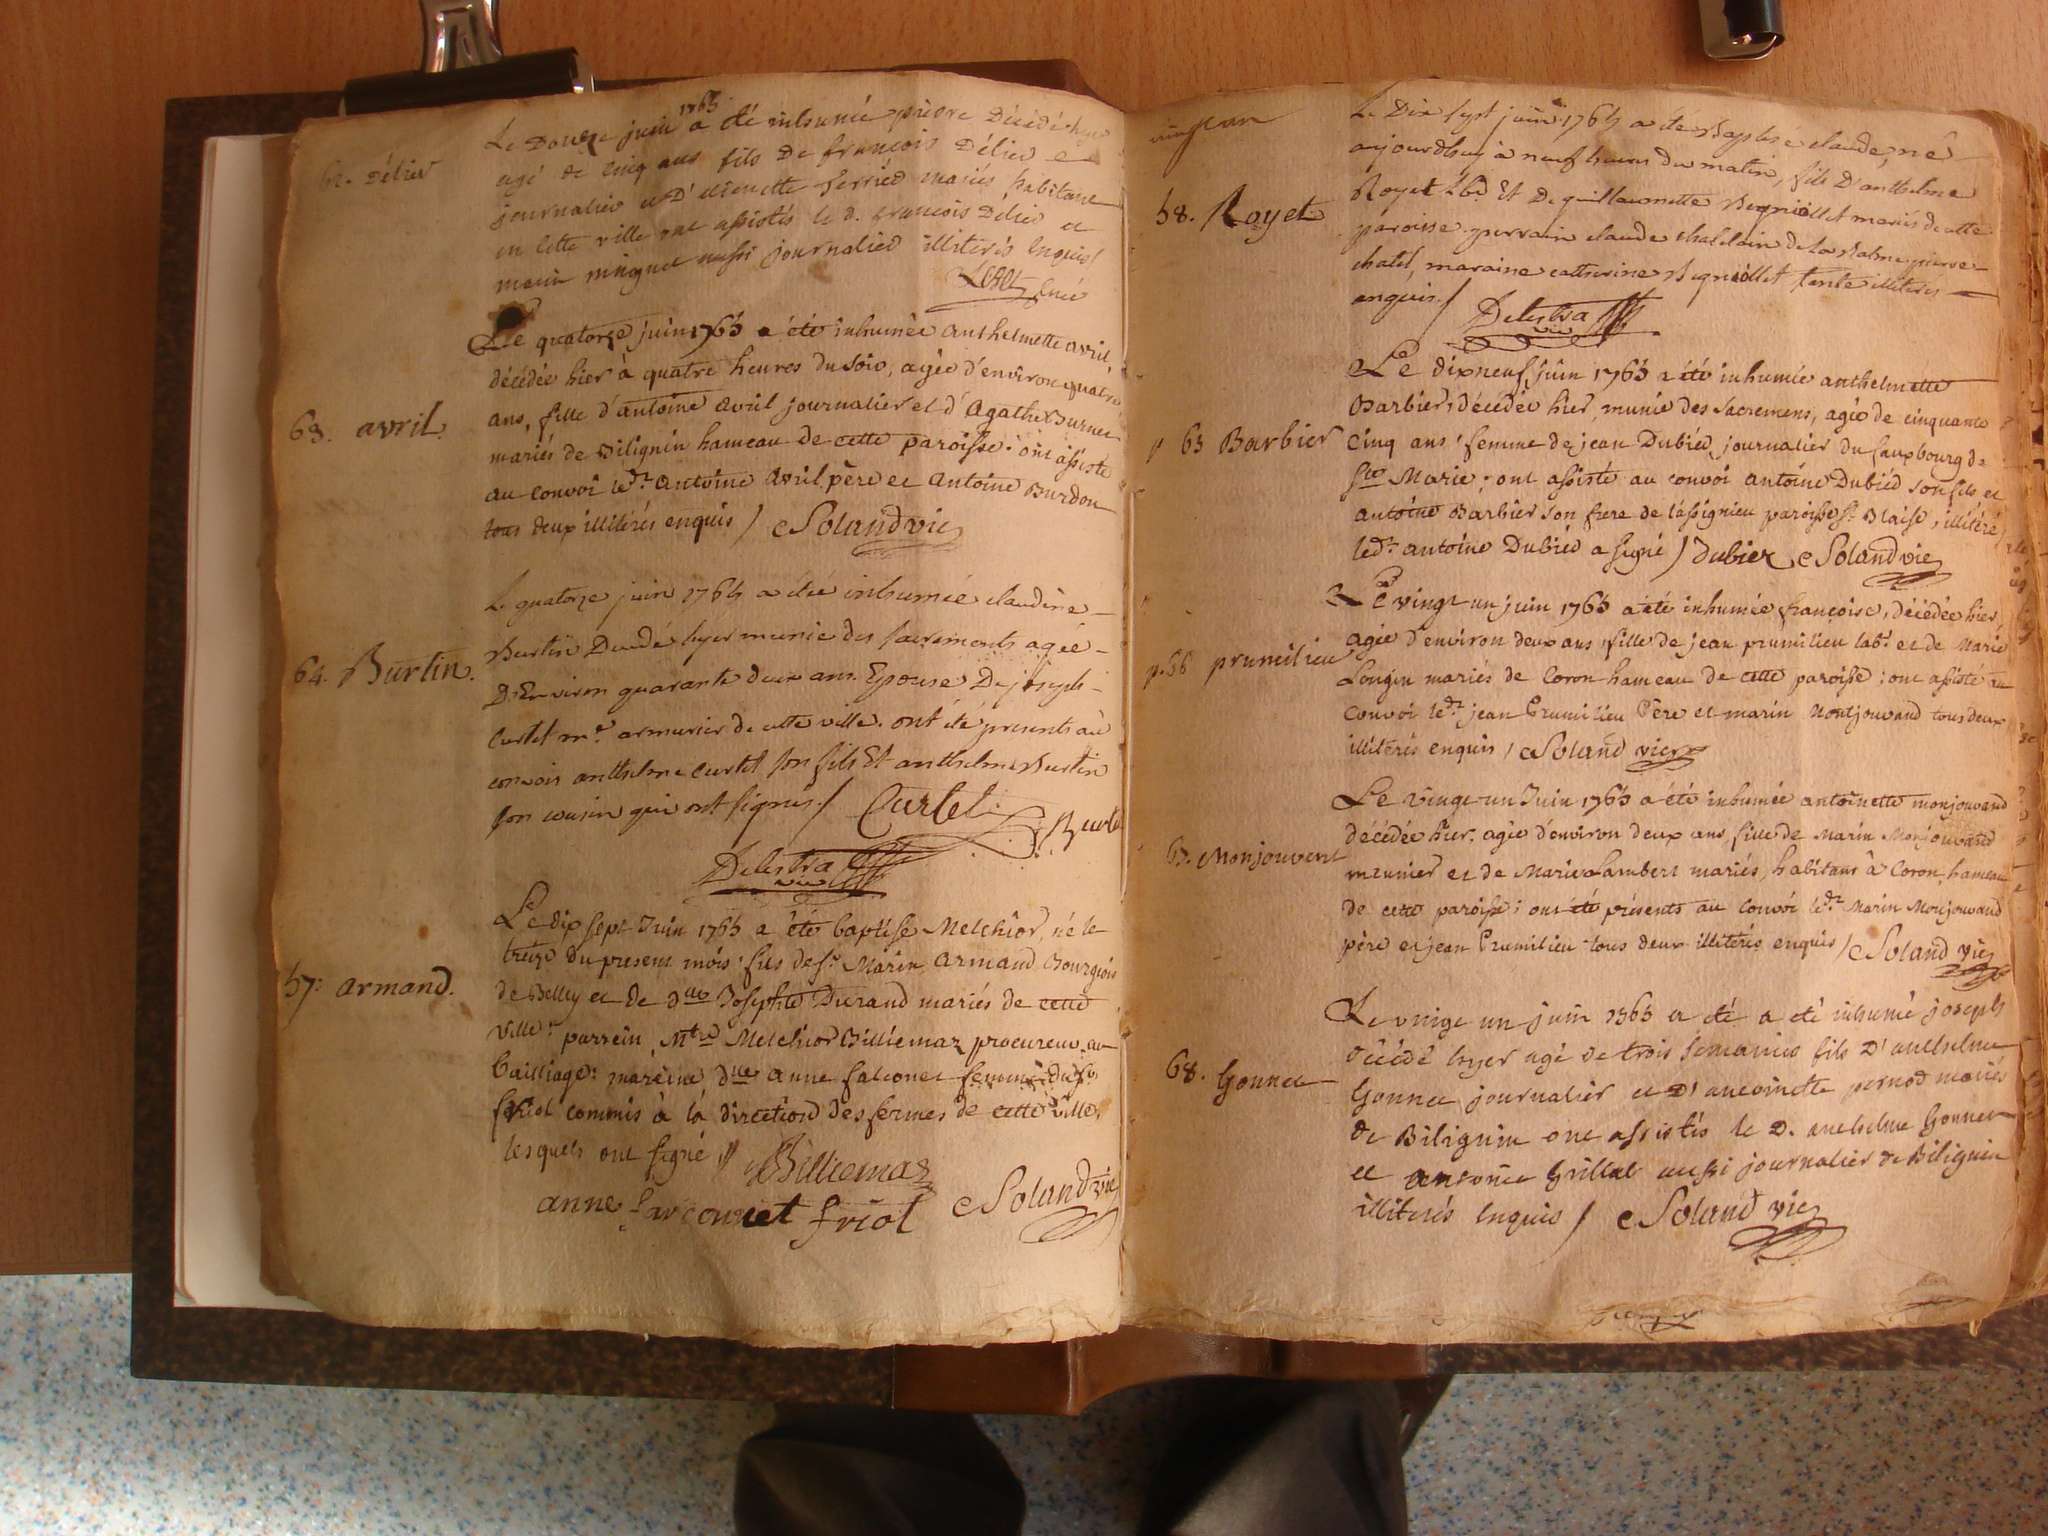 62. Délier
Le Douze juin 1765 a été inhumé pierre Décédé hyer
agé de cinq ans fils De françois Délier et
journalier et D'étienette mariés habitans
en cette ville ont assistés le d. françois Délier et
marin minguet aussi journalier illiterés Enquis/
curé
63. avril.
Le quatorze juin 1765 a été inhumée anthelmette avril
décédée hier à quatre heures du soir, agée d'environ quatre
ans, fille d'antoine avril journalier et d'Agathe Burnet
mariés de Bilignin hameau de cette paroisse: ont assisté
au convoi led.t antoine Avril père et Antoine Burdon
tous deux illitérés enquis / Soland vic
64. Burtin.
Le quatorze juin 1765 a été inhumée claudine
Burtin Décédé hyer munie des sacrements agée
D'Environ quarante deux ans. Epouse De joseph
Curtet m.e armurier de cette ville. ont été presents au
convois anthelme curtet son fils Et anthelme Burtin
son cousin qui ont signés / Curtet Burtin
Delestra
vic
57. armand.
Le dix sept Juin 1765 a été baptisé Melchior, né le
treize du present mois: fils de s.r Marin Armand Bourgeois
de Belley et de dlle Josephte Durand mariés de cette
ville: parrein, Mtre Melchior Billiemaz procureur au
bailliage: mareine dlle anne falconet femme du sr
friol commis à la direction des fermes de cette ville,
lesquels ont signé // Billiemaz
anne farconnet friol Soland vic
58. Royet
Le Dix sept juin 1765 a été Baptisé claude, né
aujourdhuy à neuf heures du matin, fils D'anthelme
Royet Lb.r Et De guillaumette Begniollet mariés de cette
paroisse. parrain claude chatelain de la Balme pierre
chatel, maraine catherine Begniollet tante illiterés
enquis. / Delestra
vic
65 Barbier
Le dixneuf juin 1765 a été inhumée anthelmette
Barbier, décédée hier, munie des Sacremens, agée de cinquante
cinq ans, femme de jean Dubied journalier du fauxbourg de
ste Marie: ont assisté au convoi antoine Dubied son fils et
antoine Barbier son frere de Lassignieu paroisse st Blaise, illitéré,
led.t antoine Dubied a signé / Dubiez Soland vic
66 prumilieu
Le vingt un juin 1765 a été inhumée françoise, décédée hier,
agée d'environ deux ans, fille de jean prumilieu lab.r et de Marie
Longin mariés de Coron hameau de cette paroisse; ont assisté au
convoi led.t jean Prumilieu Père et marin Montjouvand tous deux
illitérés enquis / Soland vic
67. Monjouvent
Le Vingt un Juin 1765 a été inhumée antoinette monjouvand
décédée hier, agée d'environ deux ans, fille de Marin Monjouvand
meunier et de Marie Lambert mariés, habitans à Coron, hameau
de cette paroisse; ont été présents au convoi led.t Marin Monjouvand
père et jean Prumilieu tous deux illitérés enquis / Soland vic
68. Gonnet
Le vingt un juin 1765 a été a été inhumé joseph
décédé hyer agé de trois semaines fils D'anthelme
Gonnet journalier et D'antoinette pernod mariés
de Bilignin ont assistés le d. anthelme Gonnet
et antoine Grillet aussi journalier de Bilignin
illiterés Enquis / Soland vic